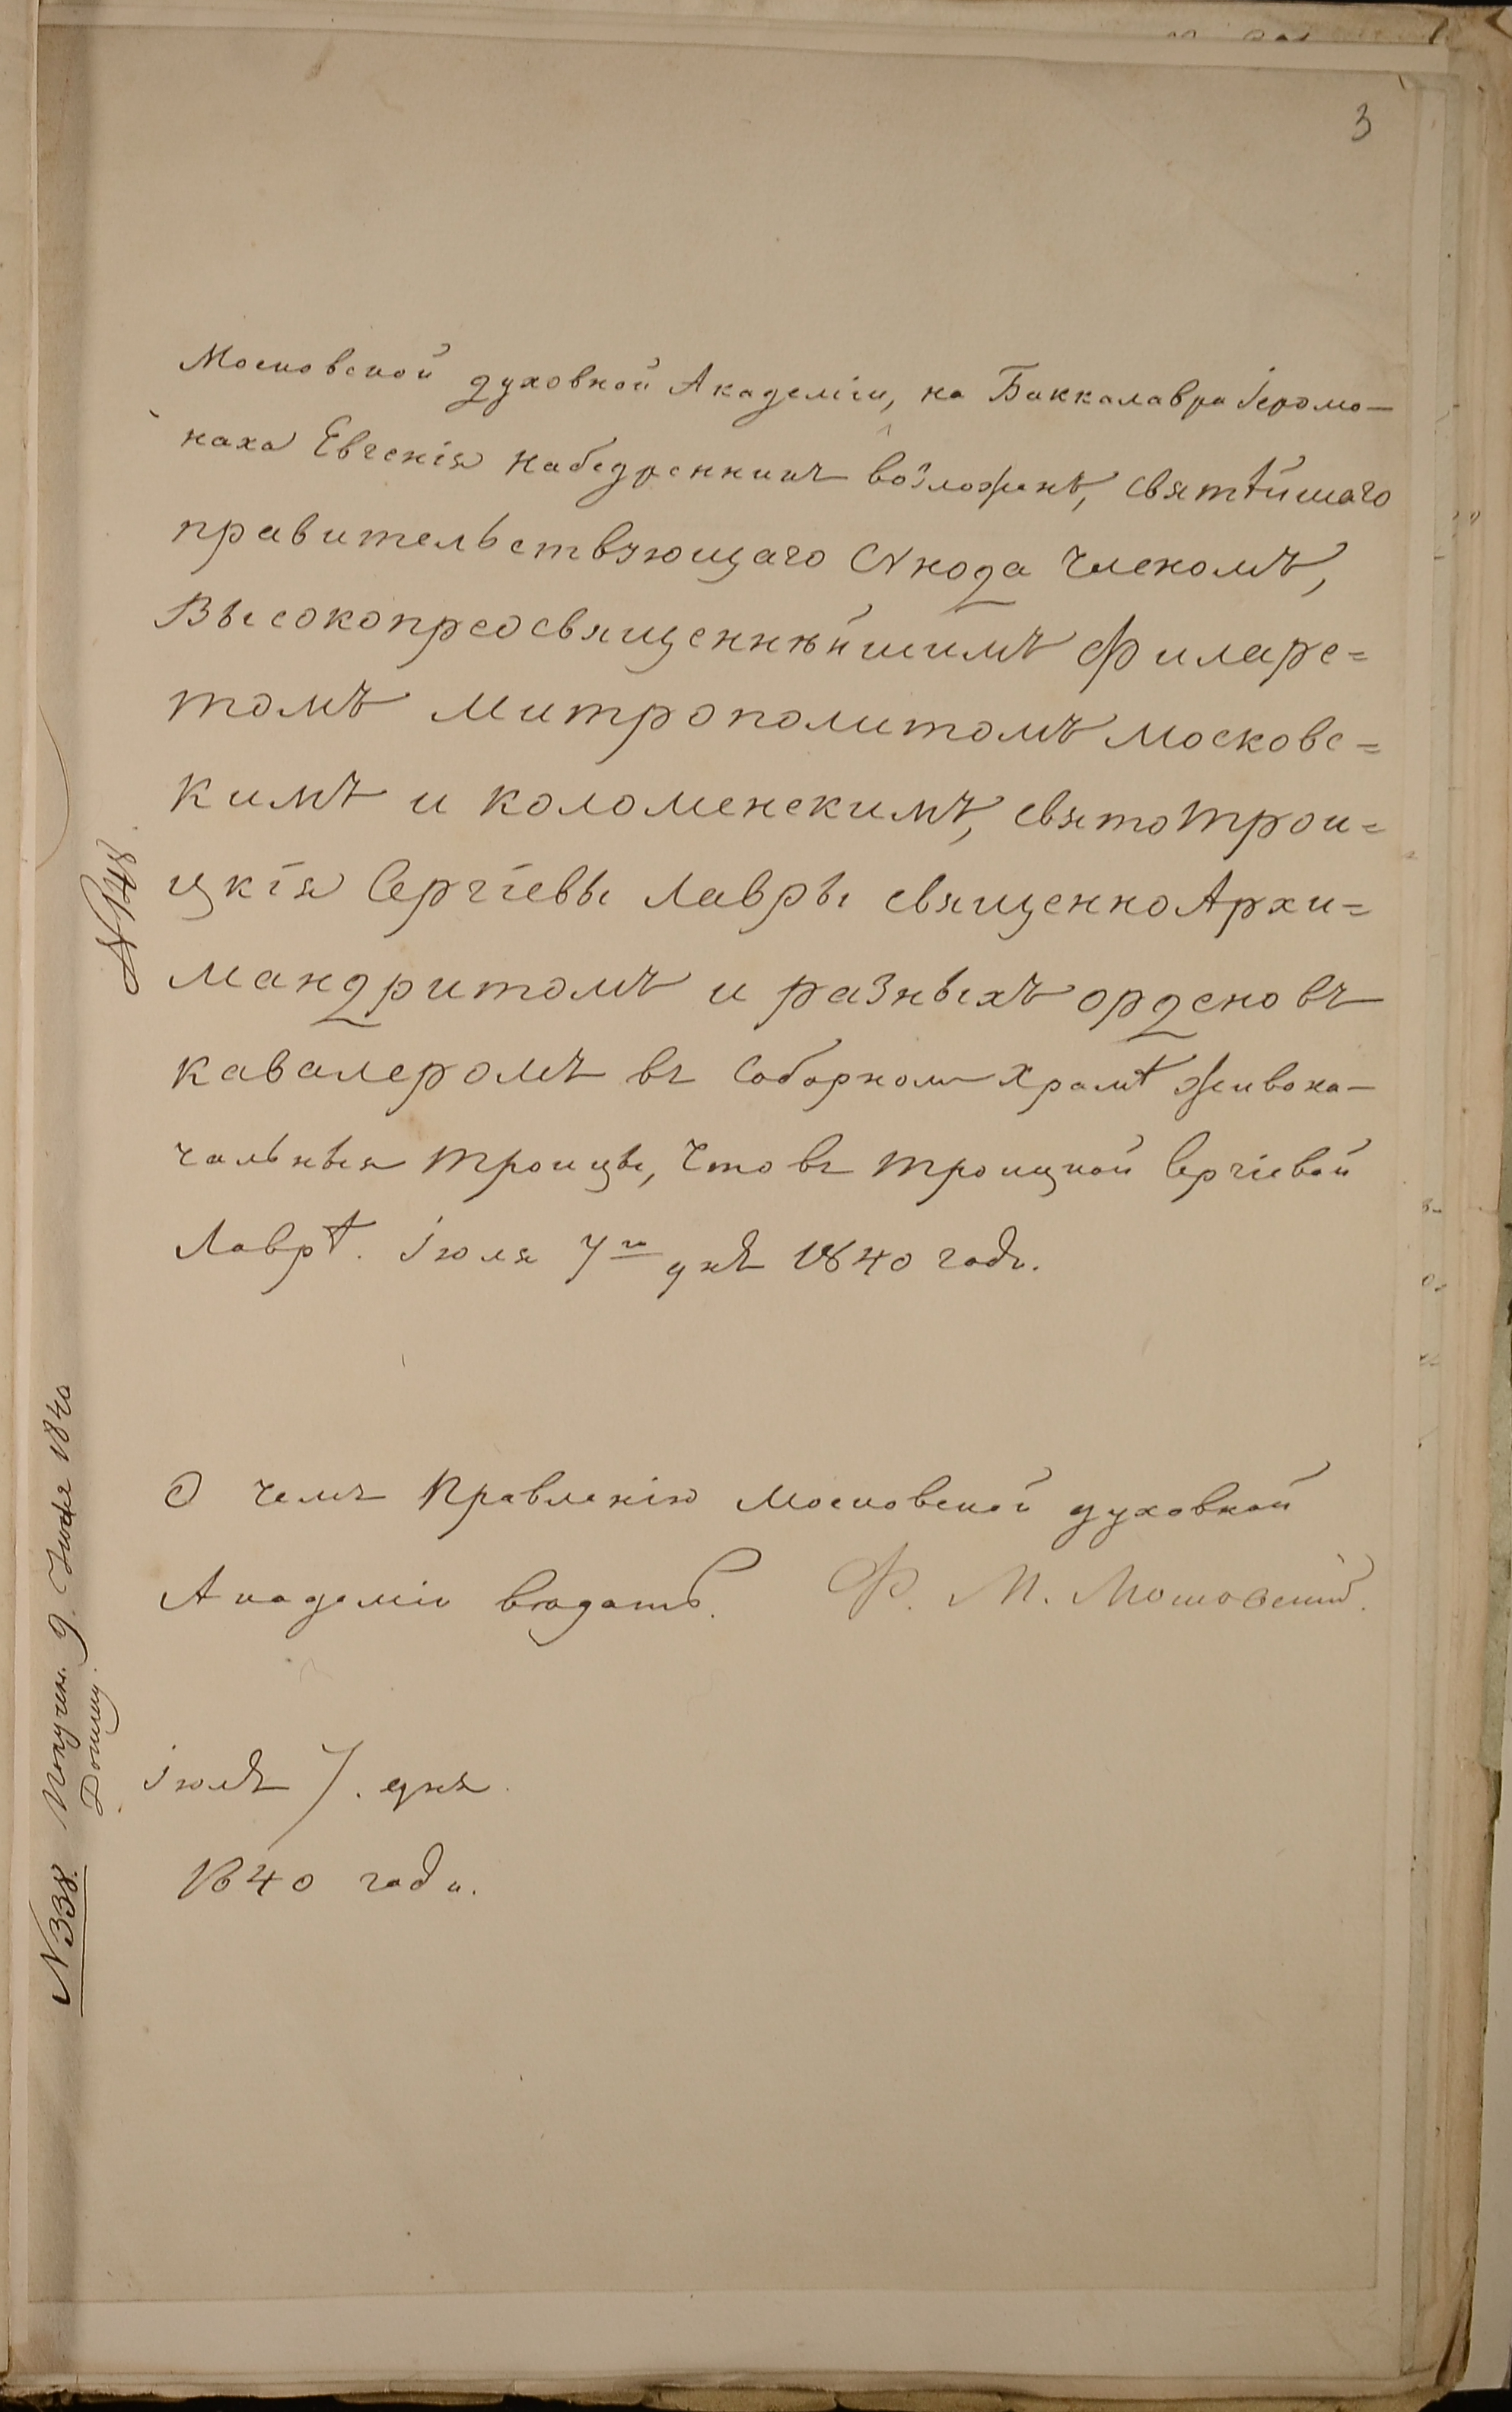 3
Московской духовной Академіи, на Баккалавра Іеромо-
наха Евгенія набедренникъ возложенъ, святѣйшаго
правительствующаго Сѵнода Членомъ,
Высокопреосвященнѣйшимъ Филаре=
томъ митрополитомъ московс=
кимъ и коломенскимъ, святотрои=
цкія Сергіевы лавры священноАрхи=
мандритомъ и разныхъ орденовъ
кавалеромъ въ Соборном храмѣ Живона-
чальныя троицы, Что въ троицкой Сергіевой
Лаврѣ. Іюля 7го днѧ 1840 года.
О чемъ Правленію московской духовной
Академіи вѣдать. Ф. М. Московскій.
Іюлѧ 7. дня
1840 года.
№ 148.
№ 338. Получен. 9. Іюля 1840